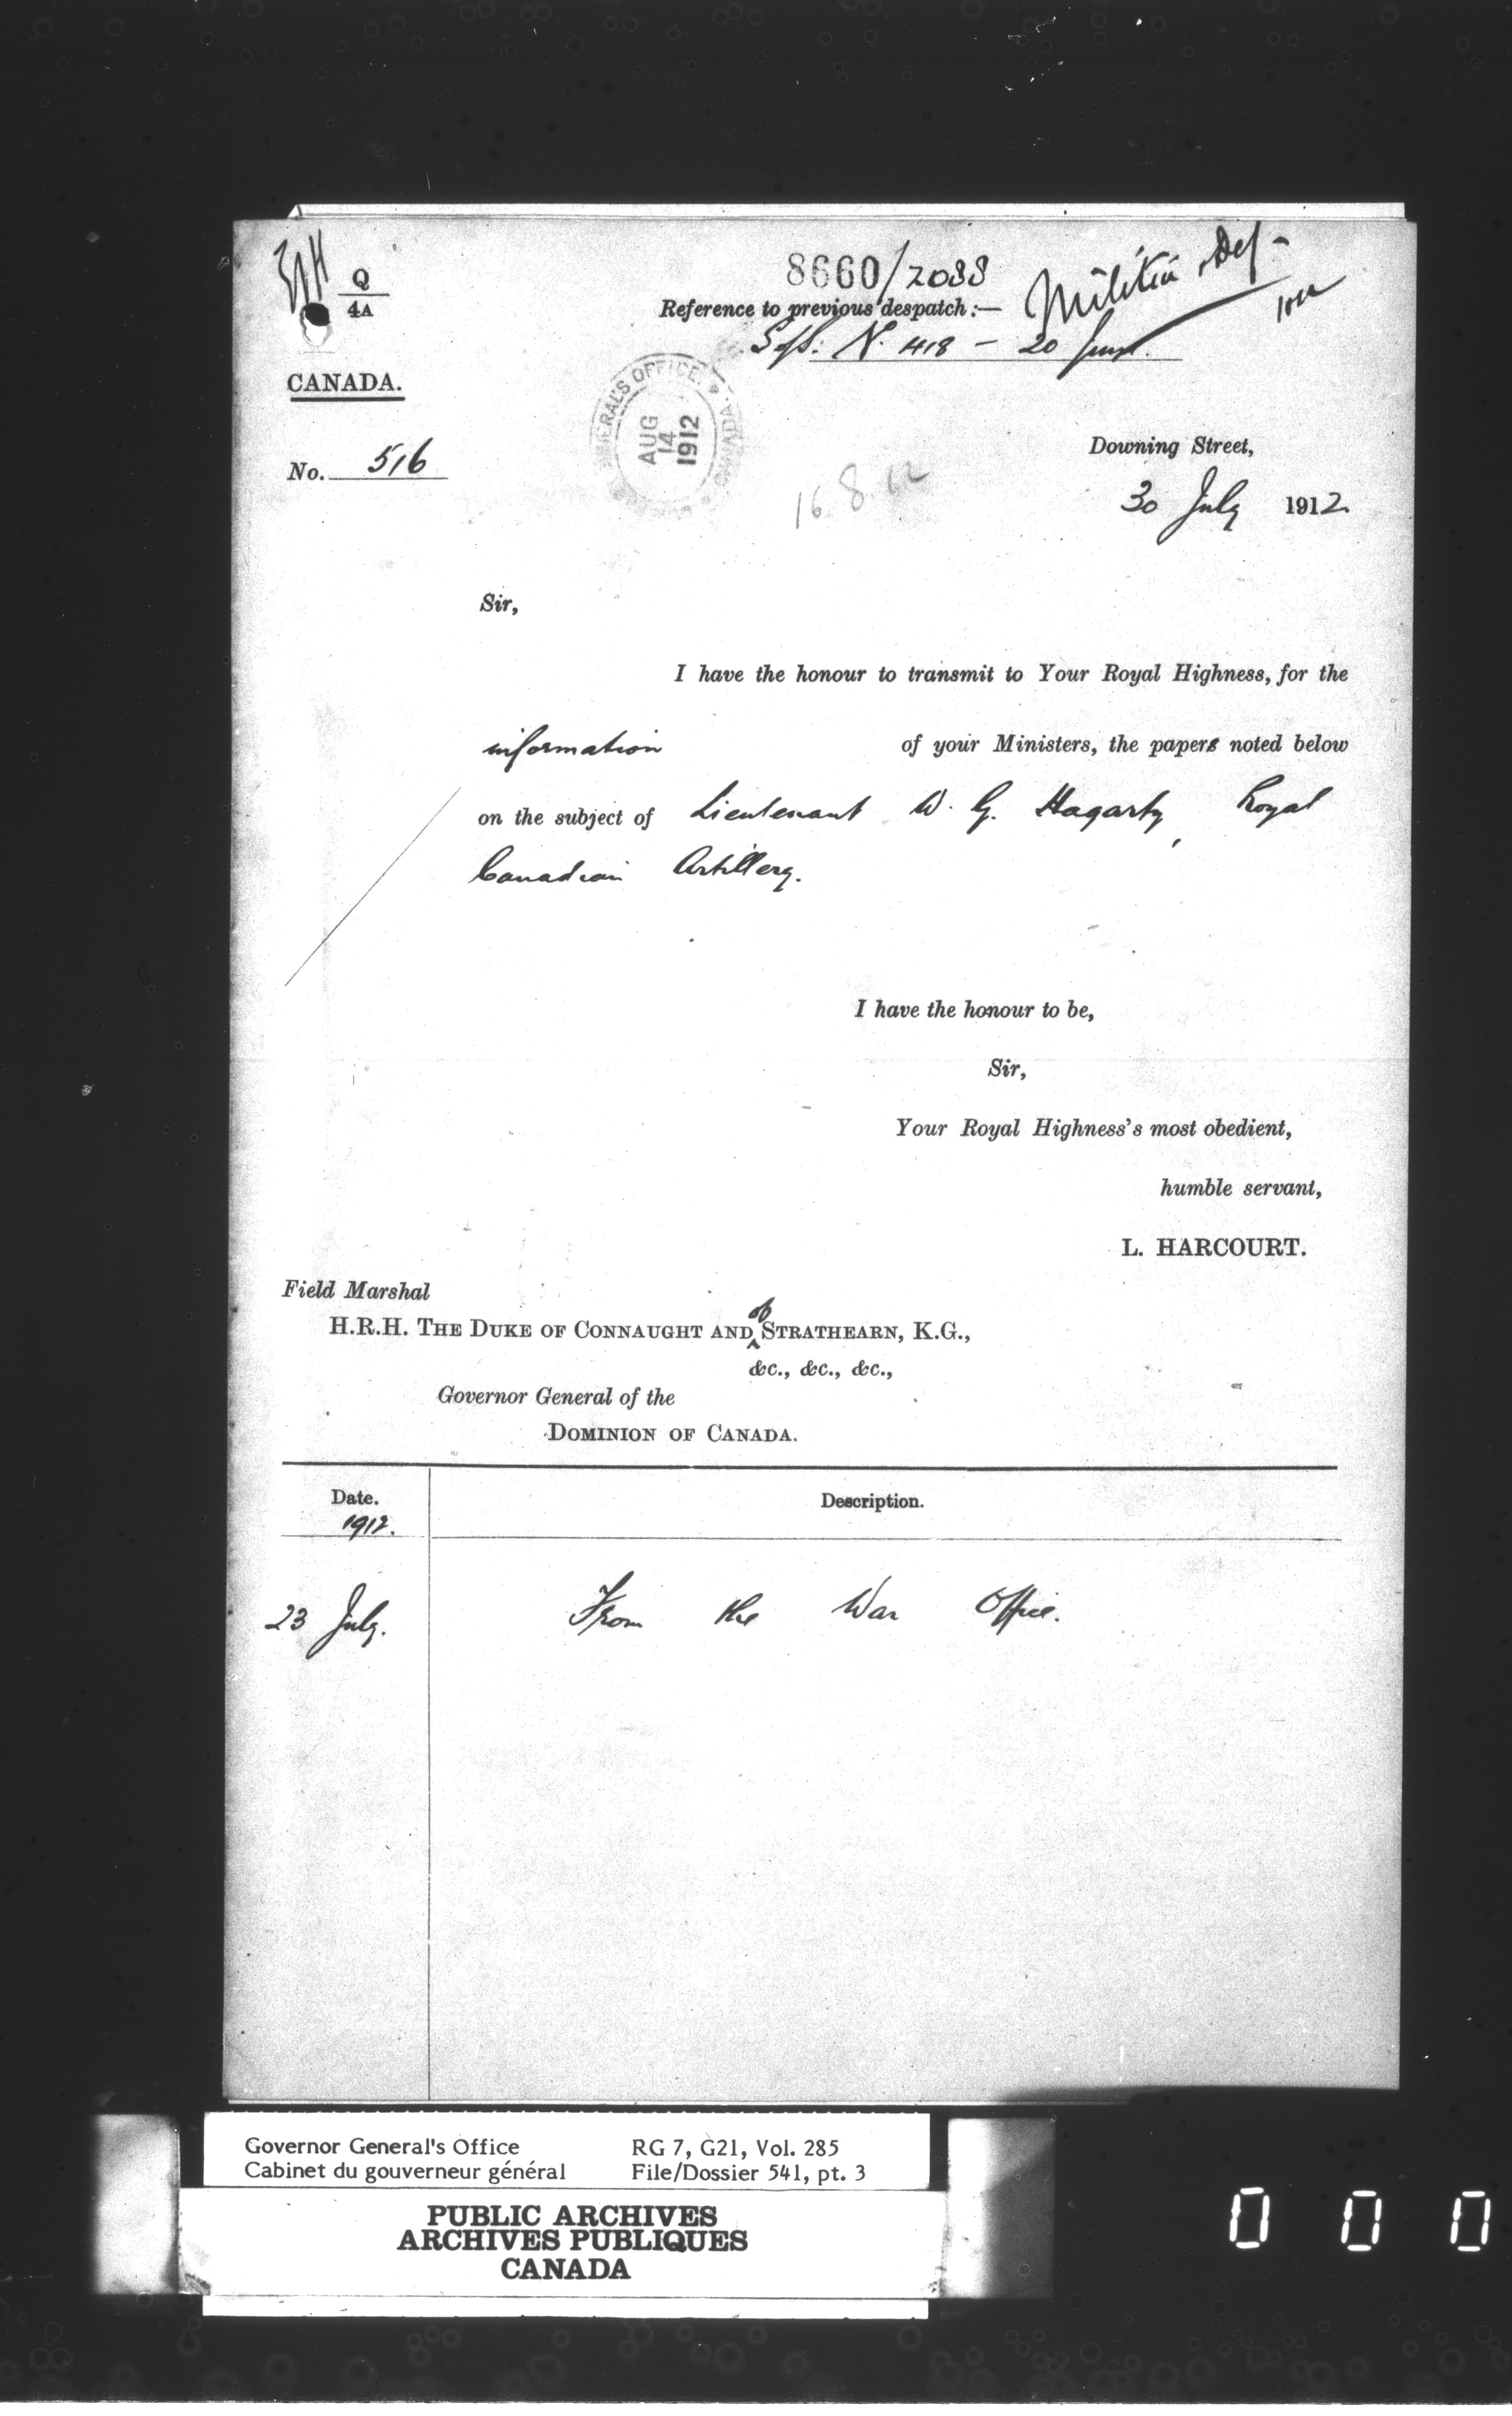 Q
4A
8660/2088
Militia & Def -
Reference to previous despatch :—
N. 418 - 20 June.
CANADA.
GENERAL'S OFFICE. CANADA.
AUG
14
1912
No. 516
Downing Street,
16.8.12
30 July 1912
Sir,
I have the honour to transmit to Your Royal Highness, for the
information of your Ministers, the papers noted below
on the subject of Lieutenant W. G. Hagarty, Royal
Canadian Artillery.
I have the honour to be,
Sir,
Your Royal Highness's most obedient,
humble servant,
L. HARCOURT.
Field Marshal
H.R.H. THE DUKE OF CONNAUGHT AND of STRATHEARN, K.G.,
&c., &c., &c.,
Governor General of the
DOMINION OF CANADA.
Date. Description.
1912.
23 July. From the War Office.
Governor General's Office RG 7, G21, Vol. 285
Cabinet du gouverneur général File/Dossier 541, pt. 3
PUBLIC ARCHIVES
ARCHIVES PUBLIQUES
CANADA
0 0 0